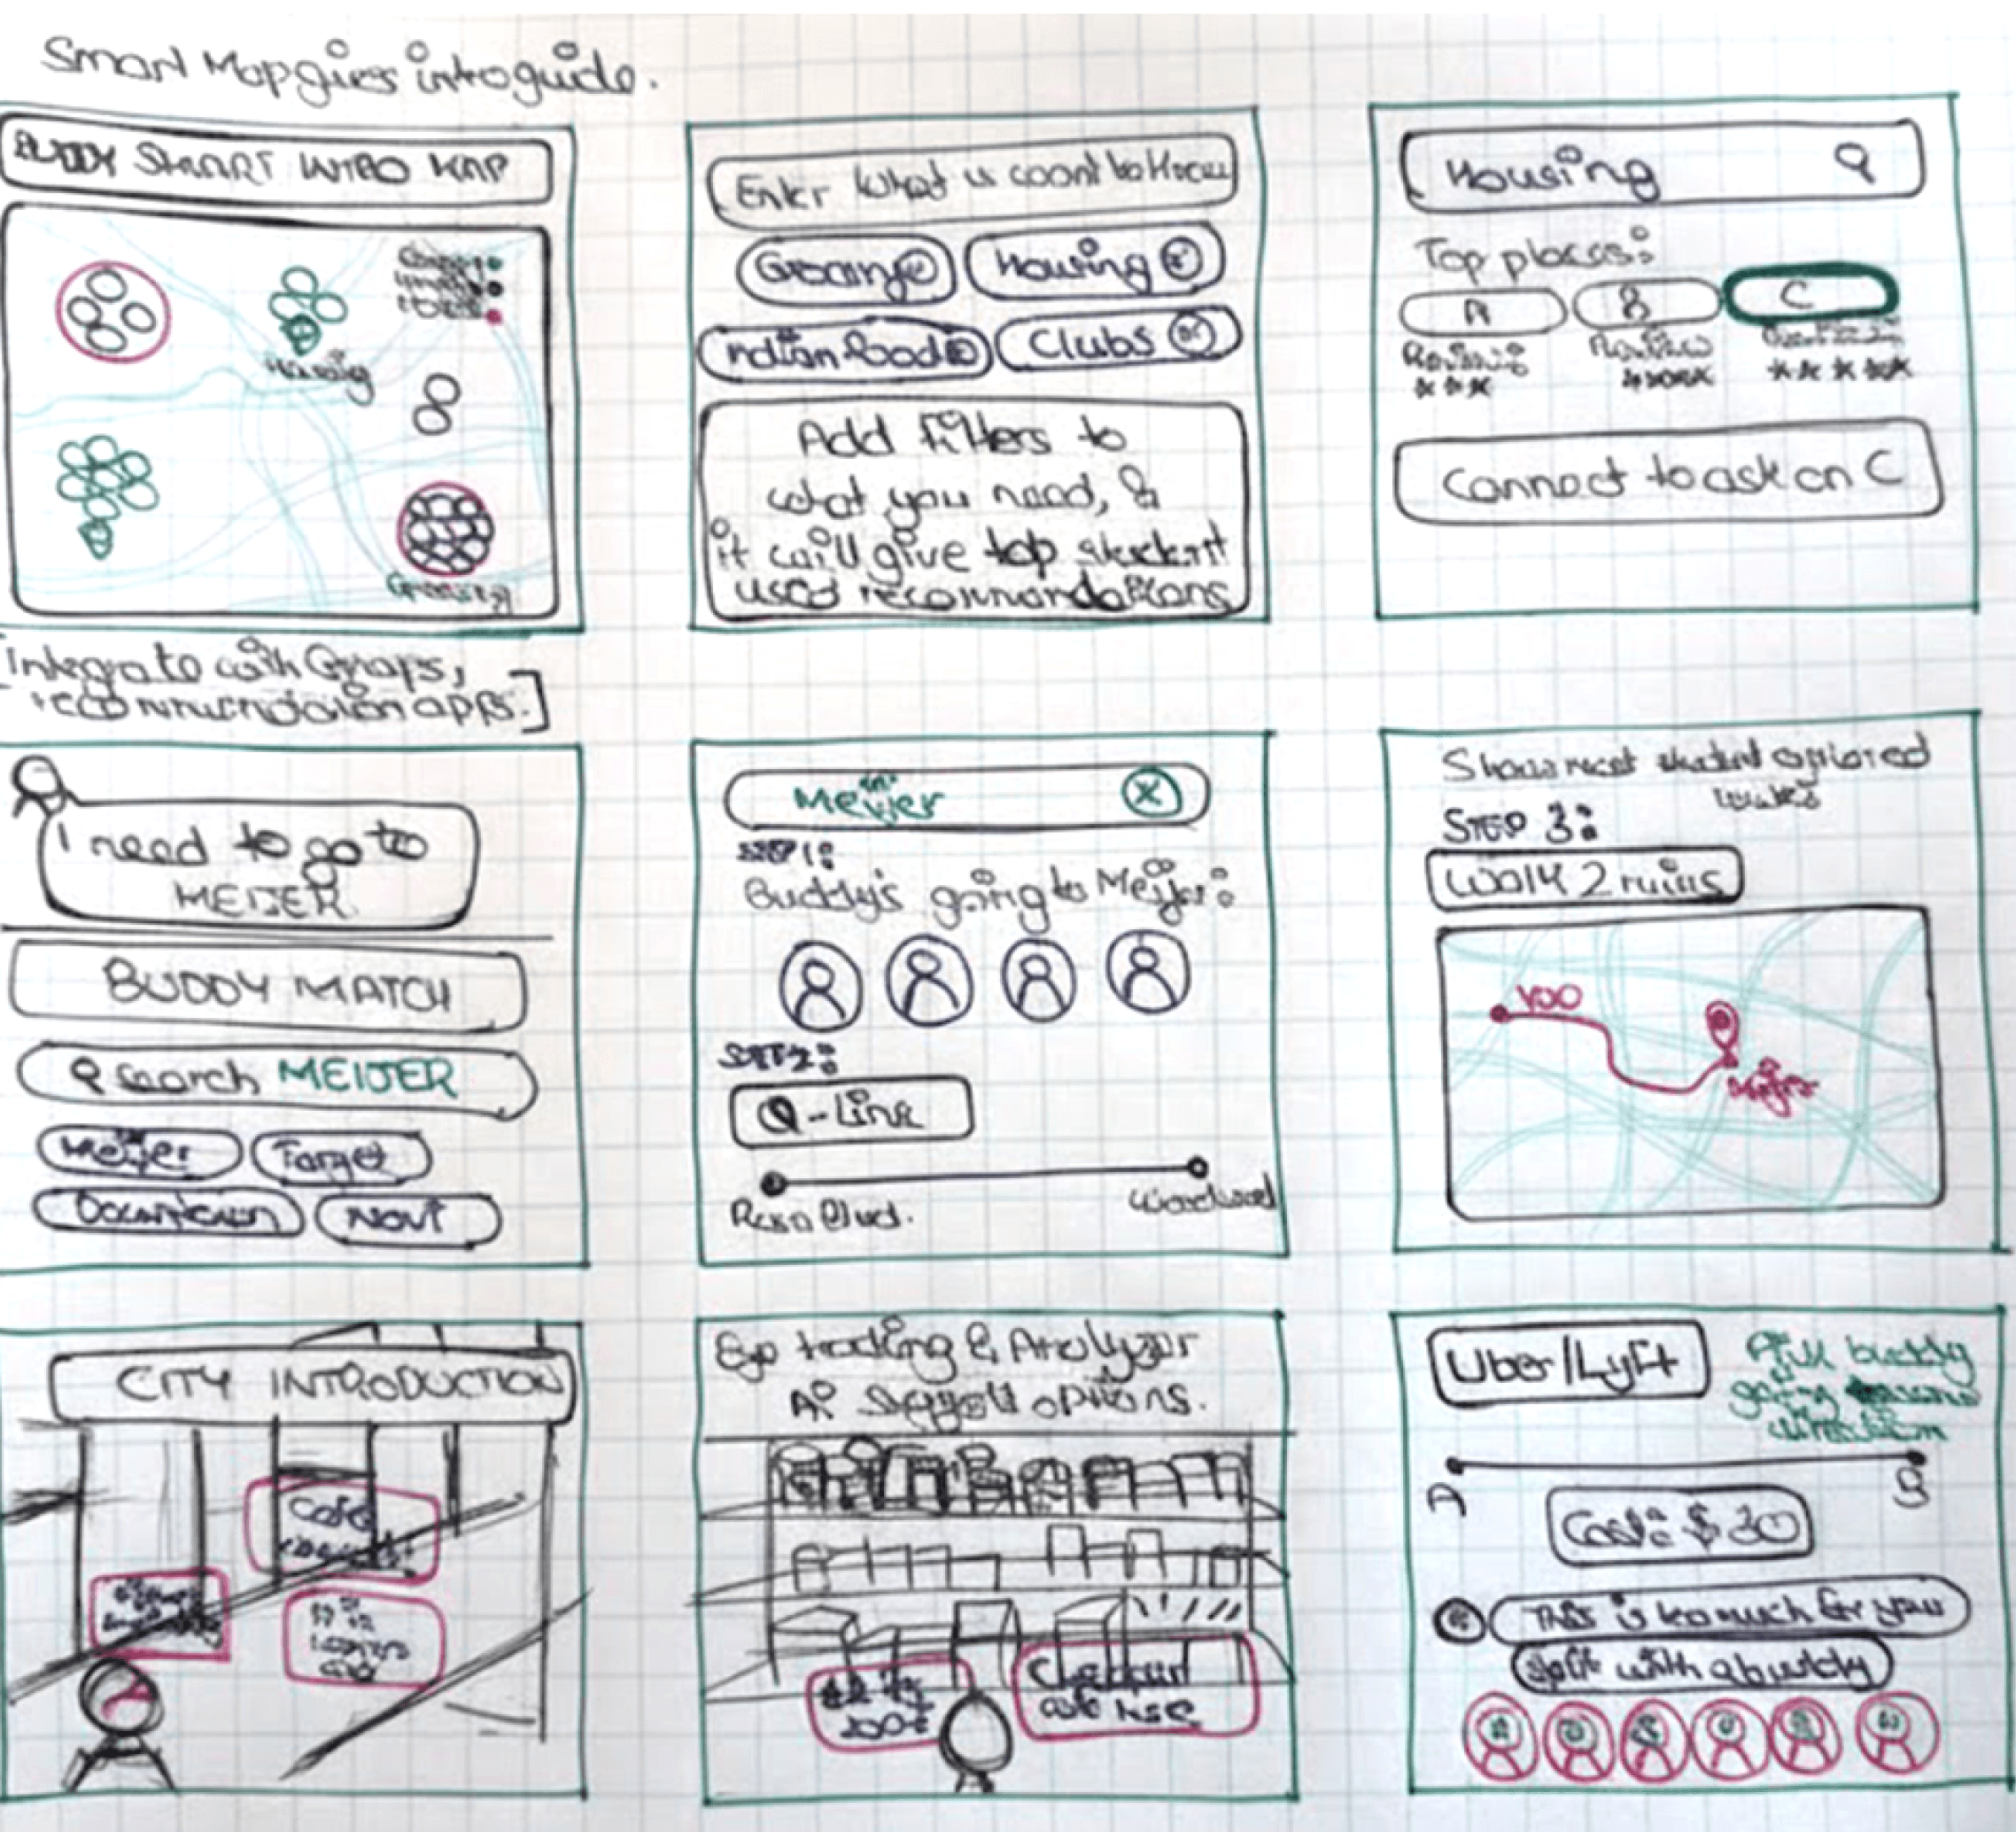 Smart Map gives intro guide.
BUDDY SMART INTRO MAP
Housing
Grocery
[Integrate with Gmaps,
recommendation apps.]
Enter what u want to know
Grocery
Housing
Indian food
Clubs
Add filters to
what you need, &
it will give top student
used recommendations
Housing
Top places:
A
B
C
Review
Connect to ask on C
I need to go to
MEIJER
BUDDY MATCH
Search MEIJER
Meijer
Target
Downtown
Novi
Meijer
STEP 1:
Buddy's going to Meijer:
STEP 2:
Q-Line
Rosa Blvd.
Woodward
Shows most student explored
routes
STEP 3:
Walk 2 mins
YOU
Meijer
CITY INTRODUCTION
Cafe
Eye tracking & Analyzer
AI suggest options.
Uber/Lyft
buddy
going
direction
A
B
Cost: $30
This is too much for you
split with a buddy